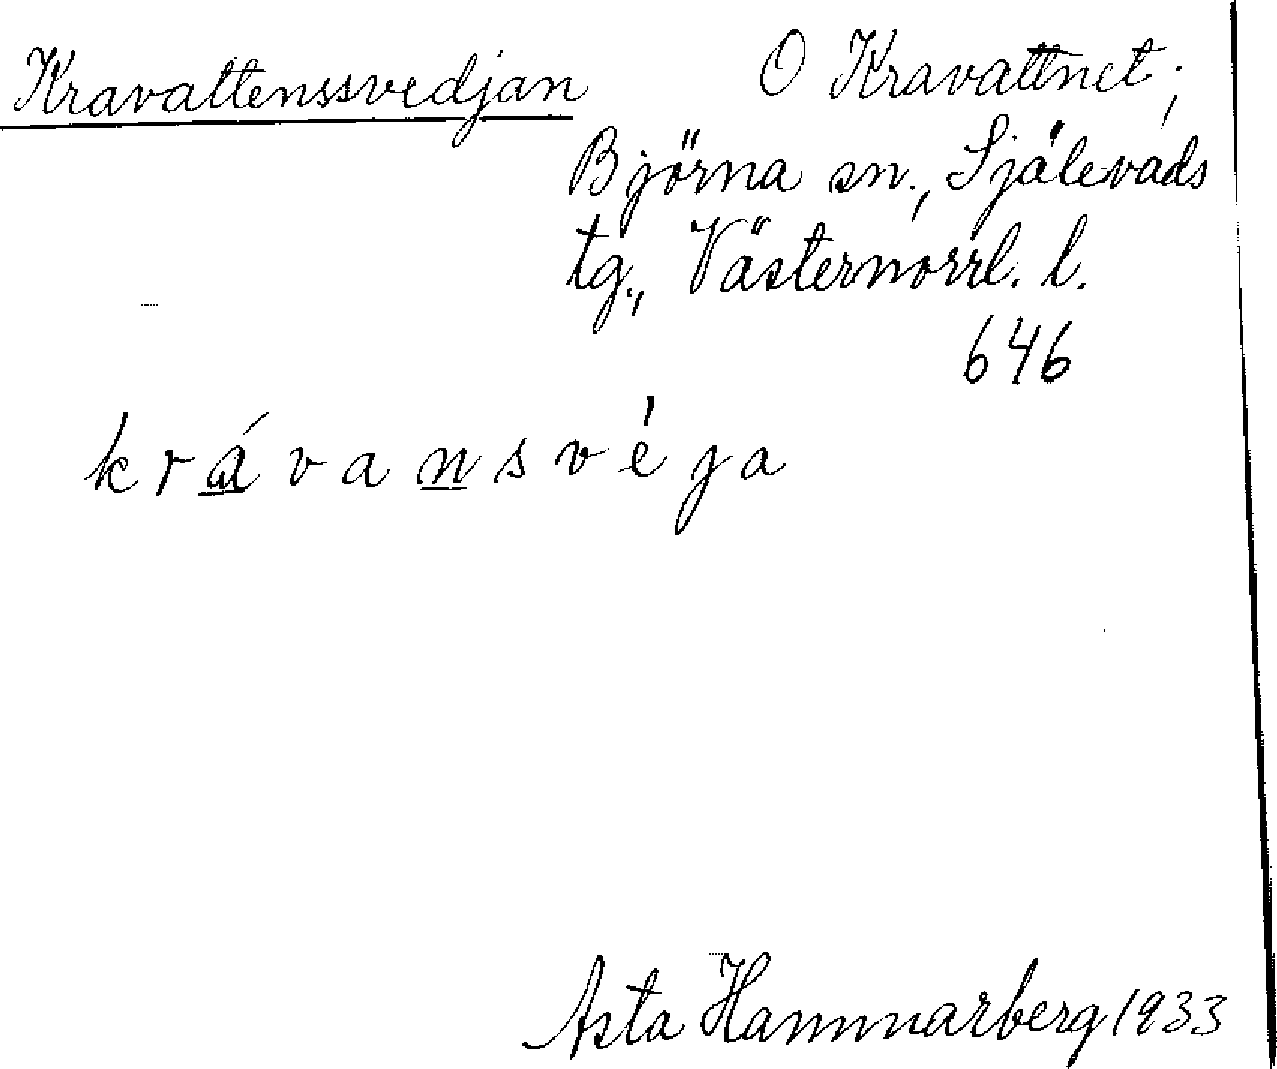 Kravattenssvedjan O Kravattnet;
Björna sn., Själevads
tg., Västernorrl. l.
646
krávansvéja
Asta Hammarberg 1933